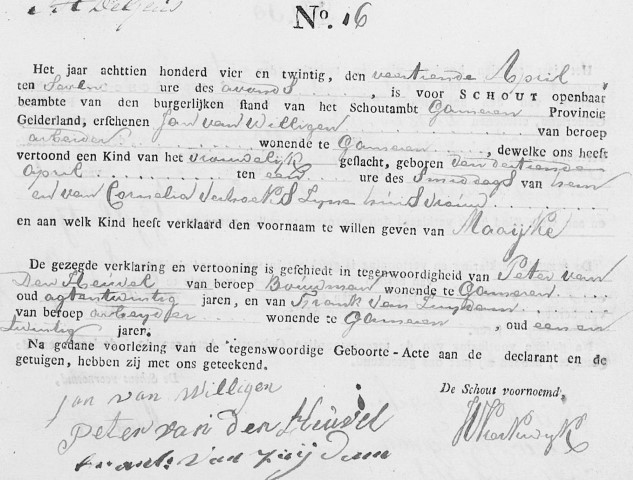 No. 16
Het jaar achttien honderd vier en twintig, den veertiende April
ten Seven ure des avonds, is voor SCHOUT openbaar
beambte van den burgerlijken stand van het Schoutambt Gameren Provincie
Gelderland, erschenen Jan van Willigen van beroep
arbeider wonende te Gameren, dewelke ons heeft
vertoond een Kind van het vrouwelijk geslacht, geboren den dertienden
April ten een ure des Smiddags van hem
en van Cornelia Verhoeks Zijne huisvrouw
en aan welk Kind heeft verklaard den voornaam te willen geven van Maaijke
De gezegde verklaring en vertooning is geschiedt in tegenwoordigheid van Peter van
Den Heuvel van beroep Bouwman wonende te Gameren
oud agtentwintig jaren, en van Frank van Zuijdam
van beroep arbeyder wonende te Gameren, oud een en
twintig jaren.
Na gedane voorlezing van de tegenswoordige Geboorte-Acte aan de declarant en de
getuigen, hebben zij met ons geteekend.
De Schout voornoemd,
Jan van Willigen
Peter van den Heuvel
Frank van Zuij Dam